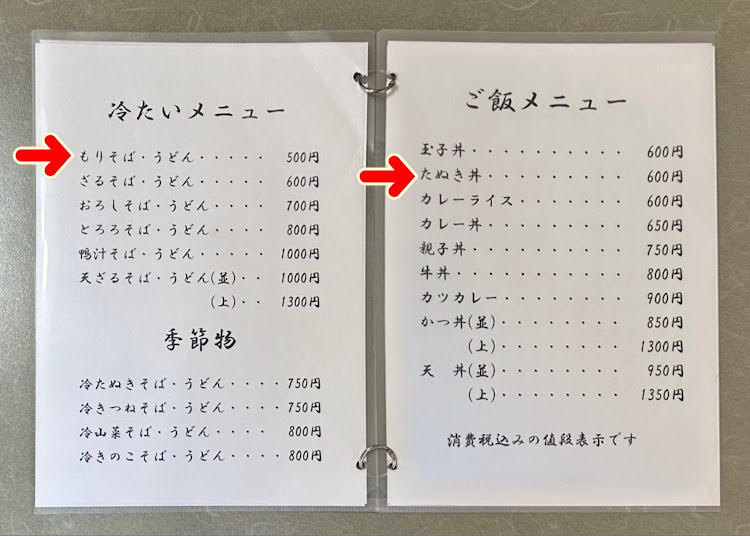 冷たいメニュー
もりそば・うどん・・・・・ 500円
ざるそば・うどん・・・・・ 600円
おろしそば・うどん・・・・ 700円
とろろそば・うどん・・・・ 800円
鴨汁そば・うどん・・・・・ 1000円
天ざるそば・うどん(並)・・ 1000円
(上)・・ 1300円
季節物
冷たぬきそば・うどん・・・・750円
冷きつねそば・うどん・・・・750円
冷山菜そば・うどん・・・・・800円
冷きのこそば・うどん・・・・800円
ご飯メニュー
玉子丼・・・・・・・・・・ 600円
たぬき丼・・・・・・・・・ 600円
カレーライス・・・・・・・ 600円
カレー丼・・・・・・・・・ 650円
親子丼・・・・・・・・・・ 750円
牛丼・・・・・・・・・・・ 800円
カツカレー・・・・・・・・ 900円
かつ丼(並)・・・・・・・・ 850円
(上)・・・・・・・・ 1300円
天 丼(並)・・・・・・・・ 950円
(上)・・・・・・・・ 1350円
消費税込みの値段表示です